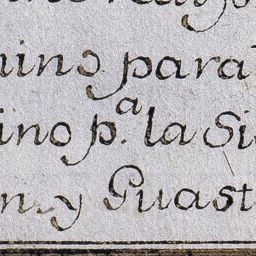 mino para
ino p.ª la Si
n y Guast